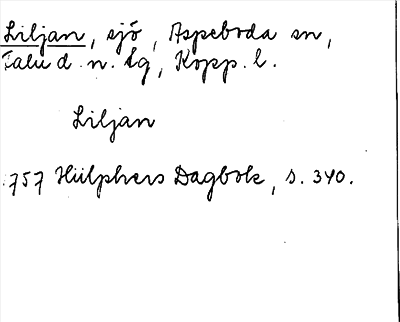 Liljan, sjö, Aspeboda sn,
Falu d. n. tg, Kopp. l.
Liljan
1757 Hülphers Dagbok, s. 340.